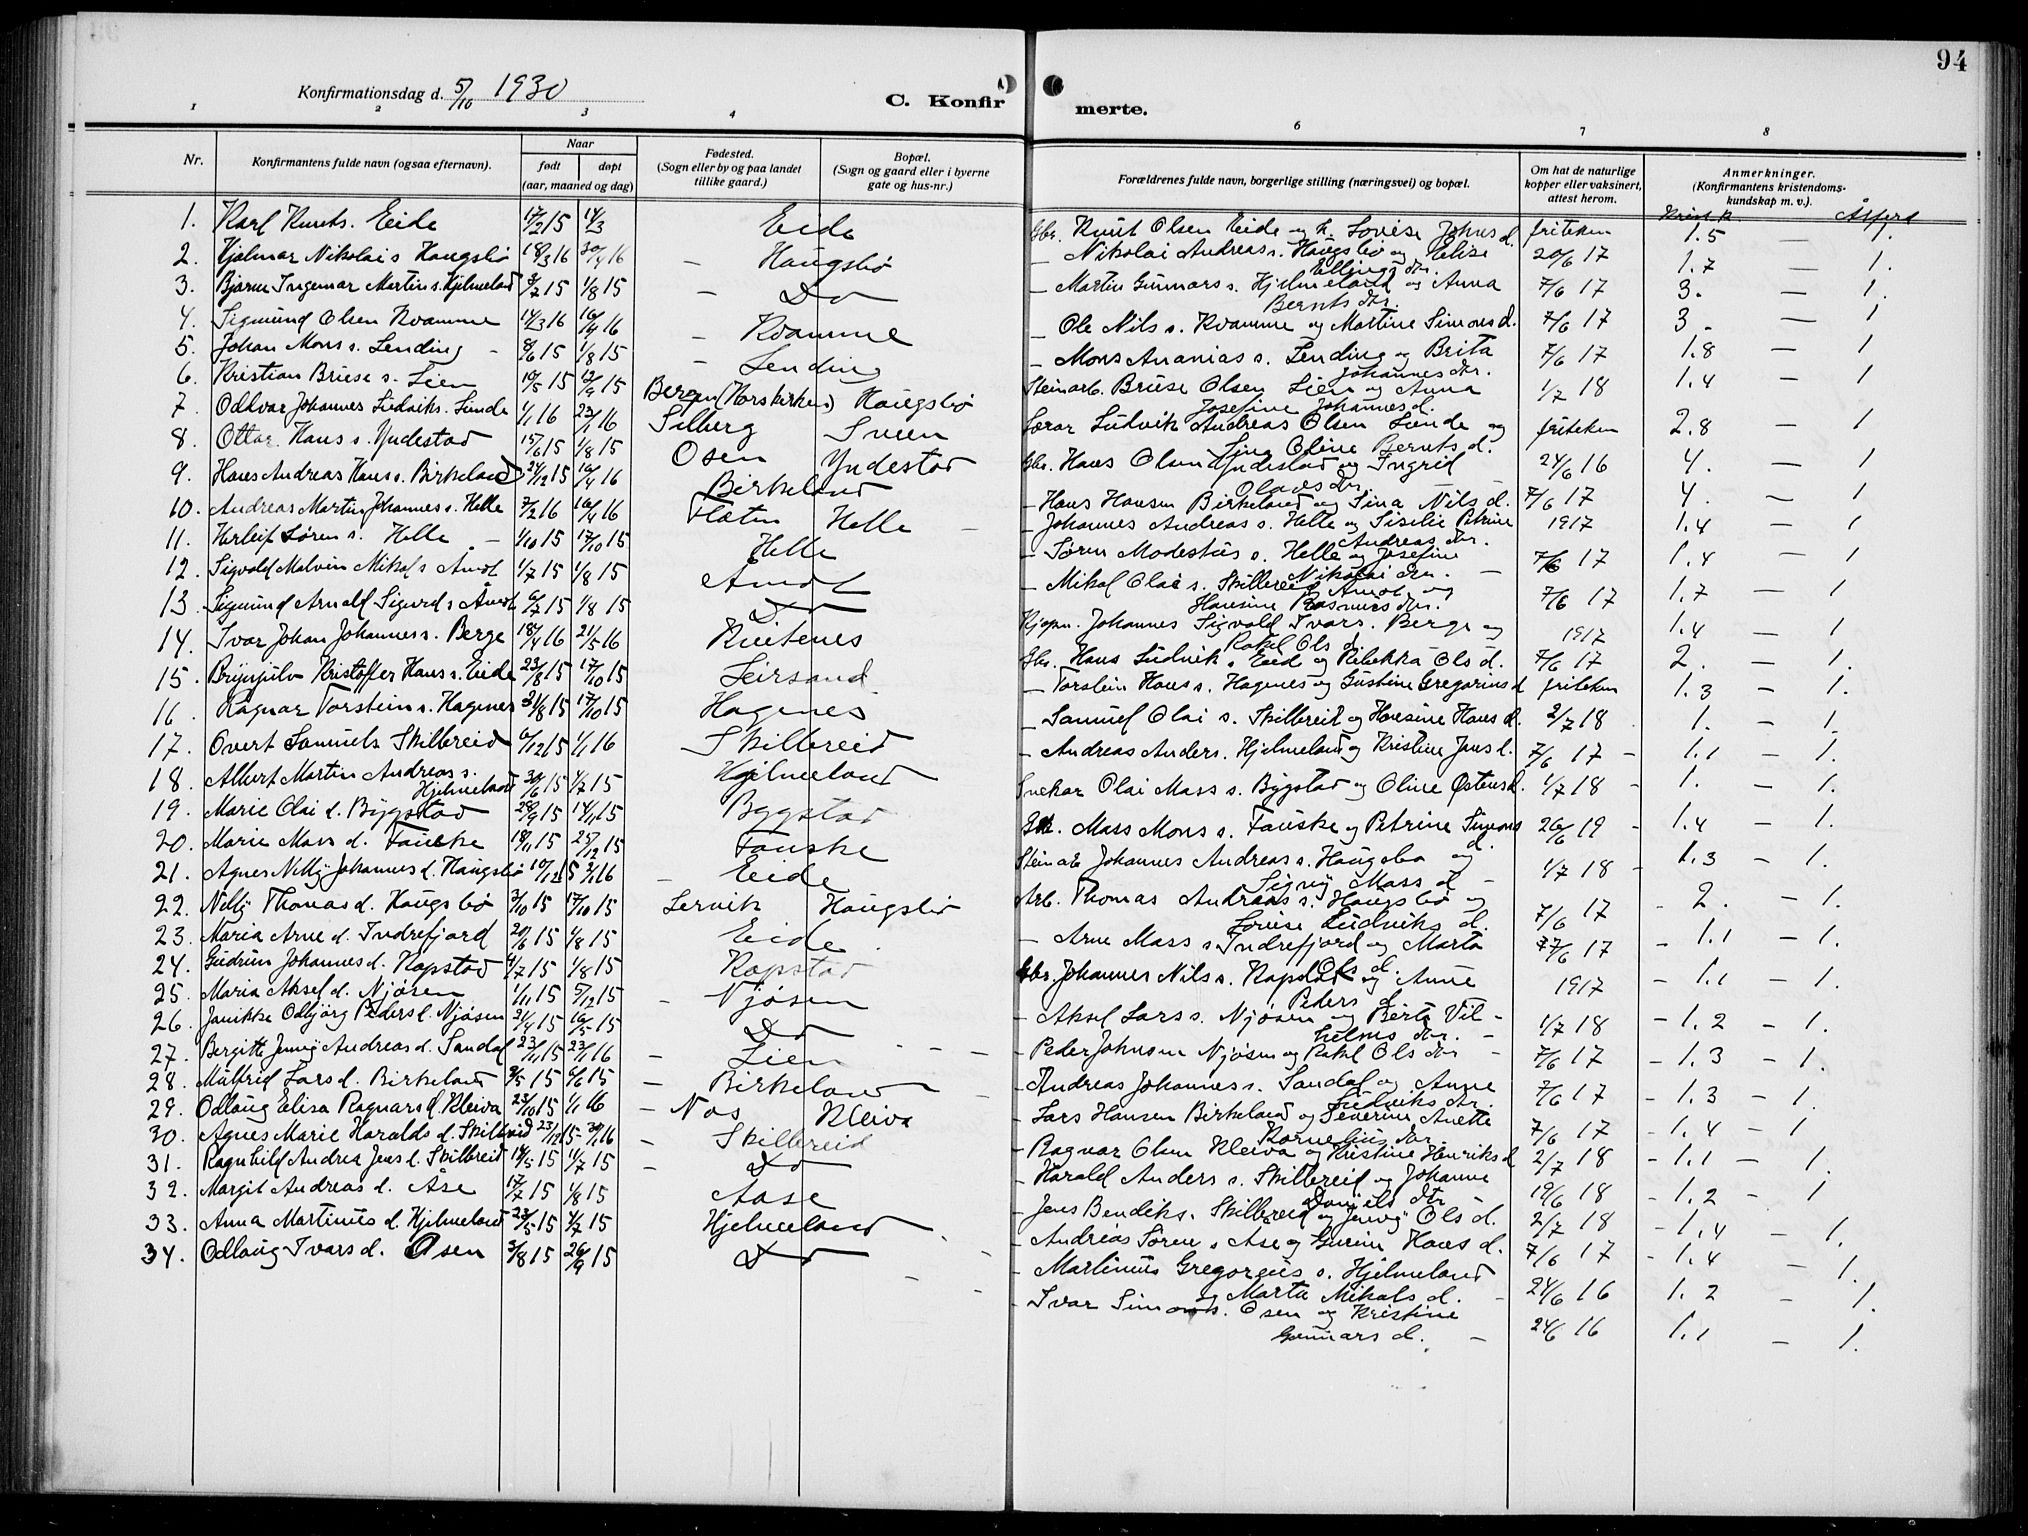 94
Konfirmationsdag d. 5/10 1930
C. Konfirmerte.
1 2 3 4 6 7 8
Nr. Konfirmantens fulde navn (ogsaa efternavn). Naar født døpt (aar, maaned og dag) Fødested. (Sogn eller by og paa landet tillike gaard.) Bopæl. (Sogn og gaard eller i byerne gate og hus-nr.) Forældrenes fulde navn, borgerlige stilling (næringsvei) og bopæl. Om hat de naturlige kopper eller vaksinert, attest herom. Anmerkninger. (Konfirmantens kristendoms-kundskap m. v.).
Krist.k. Åtferd
1. Karl Knuts. Eide 17/2 15 14/3 Eide Gbr. Knut Olsen Eide og h. Lovise Johns d. friteken 1.5 – 1.
2. Hjalmar Nikolai s Haugsbø 18/3 16 30/4 16 – Haugsbø – Nikolai Andreas s. Haugsbø og Elise Ellings dtr. 20/6 17 1.7 – 1.
3. Bjarne Ingemar Martin s. Hjelmeland 3/7 15 1/8 15 – Do – Martin Gunnars s. Hjelmeland og Anna Bernts dtr. 7/6 17 3. – 1.
4. Sigmund Olsen Kvamme 14/3 16 16/4 16 – Kvamme – Ole Nils s. Kvamme og Martine Simons d. 7/6 17 3. – 1
5. Johan Mons s. Lending 8/6 15 1/8 15 – Lending – Mons Ananias s. Lending og Brita Johannes dtr. 7/6 17 1.8 – 1
6. Kristian Briese s. Lien 19/5 15 12/9 15 Bergen (Korskirken) Haugsbø Steinarb. Briese Olsen Lien og Anna Josefine Johannes d. 1/7 18 1.4 – 1
7. Oddvar Johannes Ludviks. Sunde 1/1 16 23/1 16 Silberg Sveen Lærar Ludvik Andreas Olsen Sunde og Lina Oline Bernts d. friteken 2.8 – 1
8. Ottar Hans s. Yndestad 15/6 15 1/8 15 Osen Yndestad Gbr. Hans Olsen Yndestad og Ingrid Olavs dtr. 24/6 16 4. – 1
9. Hans Andreas Hans s. Birkeland 24/12 15 16/4 16 Birkeland – Hans Hansen Birkeland og Sina Nils d. 7/6 17 4. – 1
10. Andreas Martin Johannes s. Helle 7/2 16 16/4 16 Flaten Helle – Johannes Andreas s. Helle og Sisilie Petrine Andreas dtr. 1917 1.4 – 1
11. Herleif Søren s. Helle 1/10 15 17/10 15 Helle – Søren Modestus s. Helle og Josefine Nikolai dtr. 7/6 17 1.4 – 1
12. Sigvald Malvin Mikal s Åmot 1/7 15 1/8 15 Åmot – Mikal Olai s. Skilbreid Åmot og Hansine Rasmus dtr. 7/6 17 1.7 – 1
13. Sigmund Arnold Sigurd s Åmot 6/7 15 1/8 15 Do
14. Ivar Johan Johannes s. Berge 18/4 16 21/5 16 Knitenes Kjøpm. Johannes Sigvald Ivars. Berge og Rakel Ols d. 1917 1.4 – 1
15. Brynjulv Kristoffer Hans s. Eide 23/8 15 17/10 15 Leirsand Gbr. Hans Ludvik s Eid og Rebekka Ols d. 7/6 17 2. – 1.
16. Ragnar Torstein s. Hagenes 31/8 15 17/10 15 Hagenes – Torstein Hans s. Hagenes og Gustine Gregorius d friteken 1.3 – 1.
17. Overt Samuels Skilbreid 6/12 15 1/1 16 Skilbreid – Samuel Olai s. Skilbreid og Hansine Hans d. 2/7 18 1. – 1.
18. Albert Martin Andreas s. Hjelmeland 30/6 15 4/7 15 Hjelmeland – Andreas Anders. Hjelmeland og Kristine Jens d. 7/6 17 – 1.1 – 1.
19. Marie Olai d. Bygstad 28/9 15 14/11 15 Bygstad Snekar Olai Mass s. Bygstad og Oline Østens d. 1/7 18 – 1. – 1.
20. Marie Mass d. Fauske 18/11 15 25/12 15 Fauske Gbr. Mass Mons s. Fauske og Petrine Simons d. 26/6 19 – 1.4 – 1.
21. Agnes Nelly Johannes d. Haugsbø 10/12 15 2/1 16 – Eide Steinarb Johannes Andreas s. Haugsbø og Signy Mass d – 1/7 18 – 1.3 – 1.
22. Nelly Thomas d. Haugsbø 3/10 15 17/10 15 Lervik Haugsbø Arb. Thomas Andreas s. Haugsbø og Lovise Ludviks d. 7/6 17 – 2. – 1.
23. Maria Arne d. Indrefjord 20/6 15 1/8 15 Eide – Arne Mass s Indrefjord og Marta Ols d. 7/6 17 – 1.1 – 1.
24. Gudrun Johannes d. Rapstad 4/7 15 1/8 15 Rapstad Gbr. Johannes Nils s. Rapstad og Anne Peders d. 1917 – 1.1 – 1.
25. Maria Aksel d. Njøsen 1/11 15 5/12 15 – Njøsen – Aksel Lars s. Njøsen og Berte Vilhelms dtr. – 1/7 18 – 1.2 – 1.
26. Janikke Odbjørg Peders d. Njøsen 21/4 15 16/5 15 Do – Peder Johnsen Njøsen og Rakel Ols dtr – 7/6 17 – 1.3 – 1.
27. Bergitte Jenny Andreas d. Sandal 23/11 15 23/1 16 – Lien – Andreas Johannes s. Sandal og Anne Ludviks dtr. 7/6 17 – 1.3 – 1.
28. Målfrid Lars d. Birkeland 2/5 15 6/6 15 – Birkeland – Lars Hansen Birkeland og Severine Anette Kornelius dtr 7/6 17 – 1.4 – 1
29. Odlaug Elisa Ragnars d. Kleiva 23/10 15 1/1 16 – Nos Kleiva – Ragnar Olsen Kleiva og Kristine Henriks d 2/7 18 – 1.1 – 1.
30. Agnes Marie Haralds d. Skilbreid 23/12 15 – 30/1 16 – Skilbreid – Harald Anders s. Skilbreid og Johanne Daniels dtr 19/6 18 – 1.2 – 1
31. Ragnhild Andrea Jens d. Skilbreid 14/5 15 4/7 15 – Do – Jens Bendiks. Skilbreid og Jenny Ols d. 2/7 18 – 1.4 – 1.
32. Margit Andreas d. Åse 17/7 15 1/8 15 Aase – Andreas Søren s Åse og Gurine Hans d. 7/6 17 – 1.4 – 1.
33. Anna Martinus d. Hjelmeland 23/5 15 4/7 15 Hjelmeland – Martinus Gregorius s. Hjelmeland og Marta Mikals d. – 24/6 16 1.2 – 1.
34. Odlaug Ivars d. Osen 3/8 15 26/9 15 Do – Ivar Simons. Osen og Kristine Gunnars d. – 24/6 16 1.1 – 1.